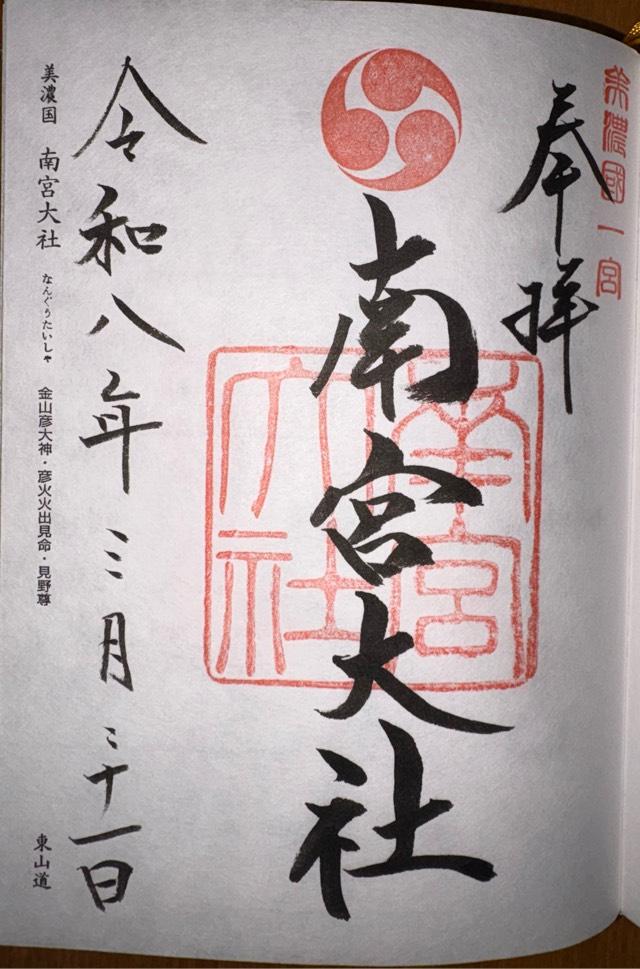 美濃國一宮
奉拝
南宮大社
南宮
大社
令和八年三月二十一日
美濃国 南宮大社 なんぐうたいしゃ 金山彦大神・彦火火出見命・見野尊 東山道